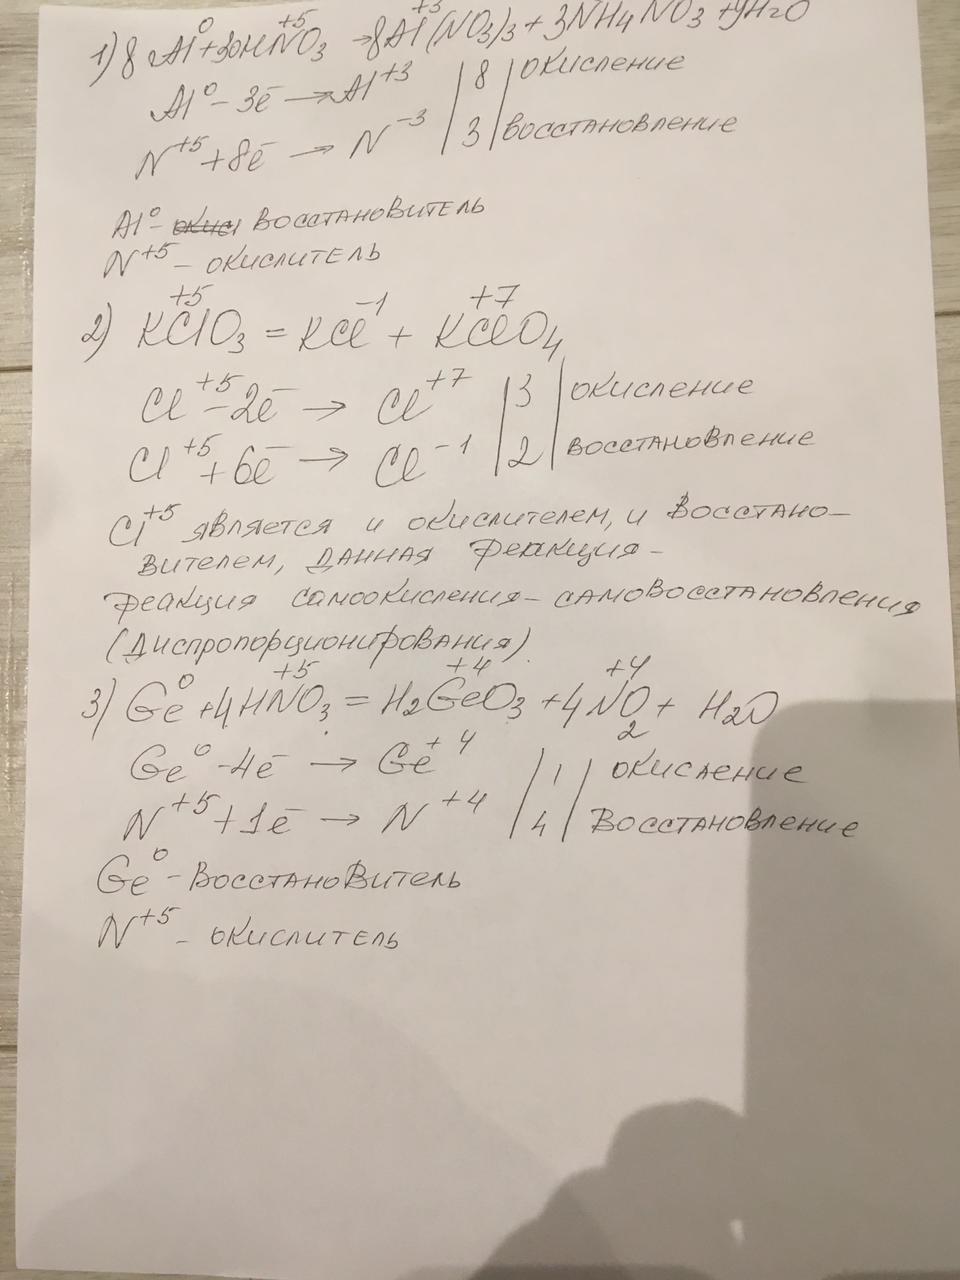 1) 8 Al⁰ + 30HN⁺⁵O₃ → 8Al⁺³(NO₃)₃ + 3NH₄NO₃ + 9H₂O
Al⁰ - 3ē → Al⁺³ | 8 | окисление
N⁺⁵ + 8ē → N⁻³ | 3 | восстановление
Al⁰ - восстановитель
N⁺⁵ - окислитель
2) KCl⁺⁵O₃ = KCl⁻¹ + KCl⁺⁷O₄
Cl⁺⁵ - 2ē → Cl⁺⁷ | 3 | окисление
Cl⁺⁵ + 6ē → Cl⁻¹ | 2 | восстановление
Cl⁺⁵ является и окислителем, и восстано-
вителем, данная реакция -
реакция самоокисления - самовосстановления
(диспропорционирования).
3) Ge⁰ + 4HN⁺⁵O₃ = H₂Ge⁺⁴O₃ + 4N⁺⁴O₂ + H₂O
Ge⁰ - 4ē → Ge⁺⁴ | 1 | окисление
N⁺⁵ + 1ē → N⁺⁴ | 4 | восстановление
Ge⁰ - восстановитель
N⁺⁵ - окислитель